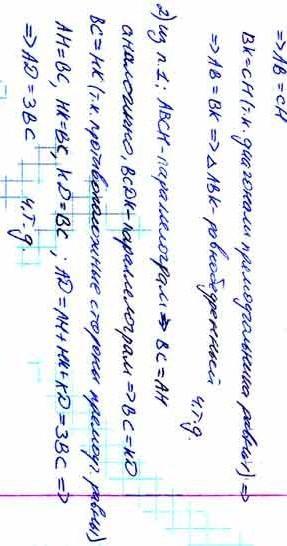 ⇒ AB = CH
BK = CH (т.к. диагонали прямоугольника равны) ⇒
⇒ AB = BK ⇒ △ABK - равнобедренный
ч.т.д.
2) из п.1: ABCH - параллелограм ⇒ BC = AH
аналогично, BCDK - параллелограм ⇒ BC = KD
BC = HK (т.к. противоположные стороны прямоуг. равны)
AH = BC, HK = BC, KD = BC, AD = AH + HK + KD = 3BC ⇒
⇒ AD = 3BC ч.т.д.